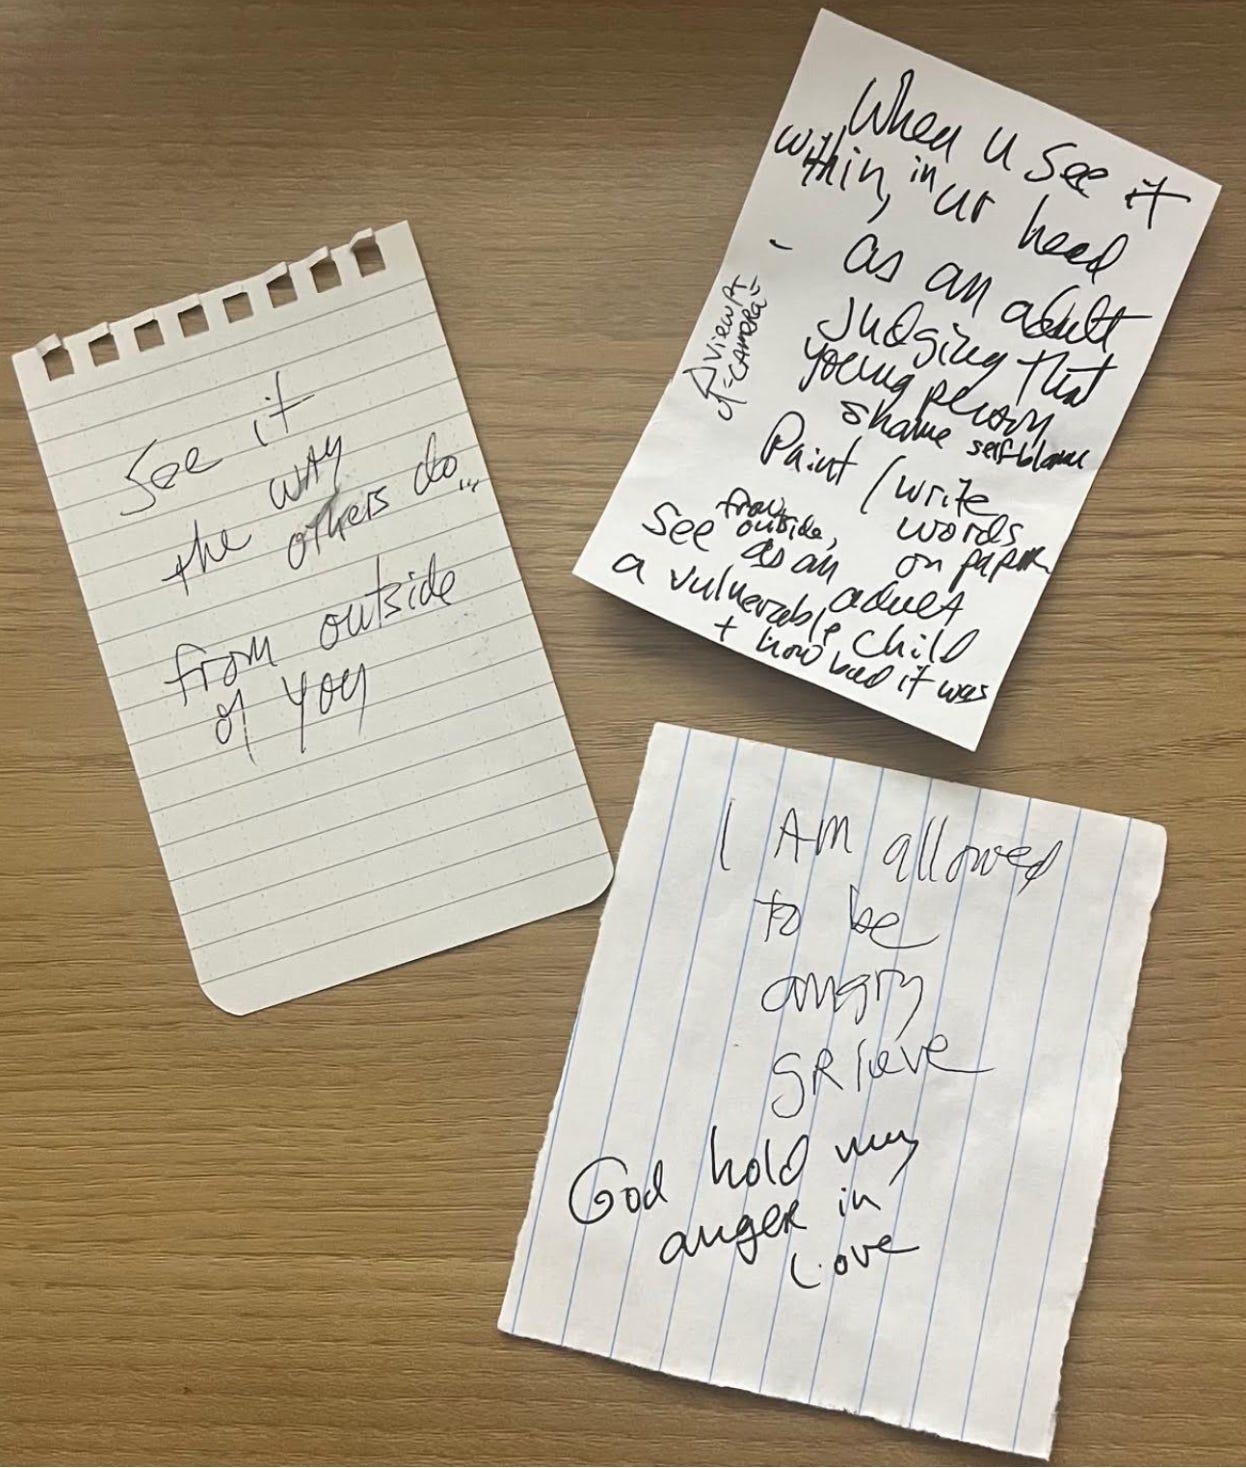 See it
the way
others do...
from outside
of you
When u see it
within, in ur head
as an adult
judging that
young person
shame self blame
Δ View Pt
of = CAMERA =
Paint / write
words
on paper
See from outside,
as an adult
a vulnerable child
+ how bad it was
I AM allowed
to be
angry
gRieve
God hold my
angeR in
Love